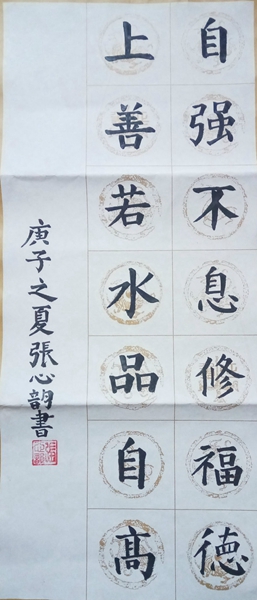 自强不息修福德
上善若水品自高
庚子之夏張心韵書